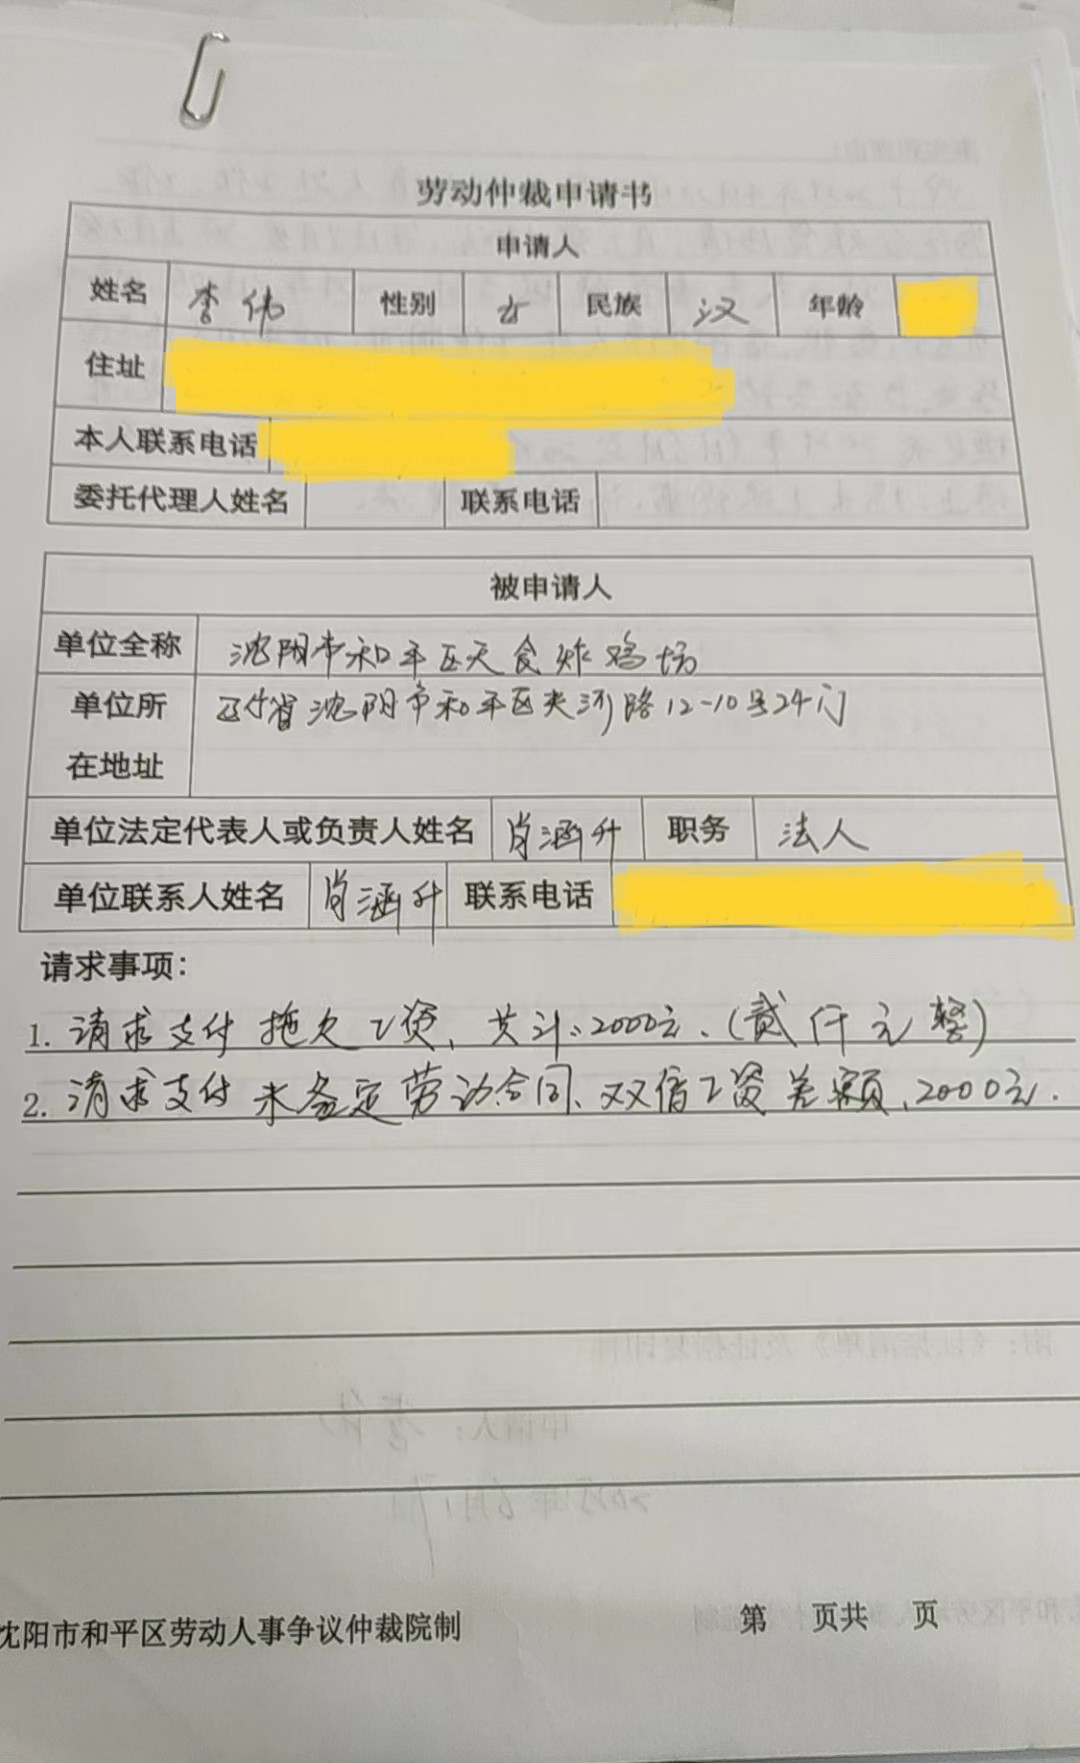 劳动仲裁申请书
申请人
姓名 李伟 性别 女 民族 汉 年龄
住址
本人联系电话
委托代理人姓名 联系电话
被申请人
单位全称 沈阳市和平区天食炸鸡场
单位所 辽宁省沈阳市和平区夹河路12-10号24门
在地址
单位法定代表人或负责人姓名 肖涵升 职务 法人
单位联系人姓名 肖涵升 联系电话
请求事项：
1. 请求支付拖欠工资、共计:2000元、(贰仟元整)
2. 请求支付未签定劳动合同、双倍工资差额、2000元.
沈阳市和平区劳动人事争议仲裁院制 第 页共 页